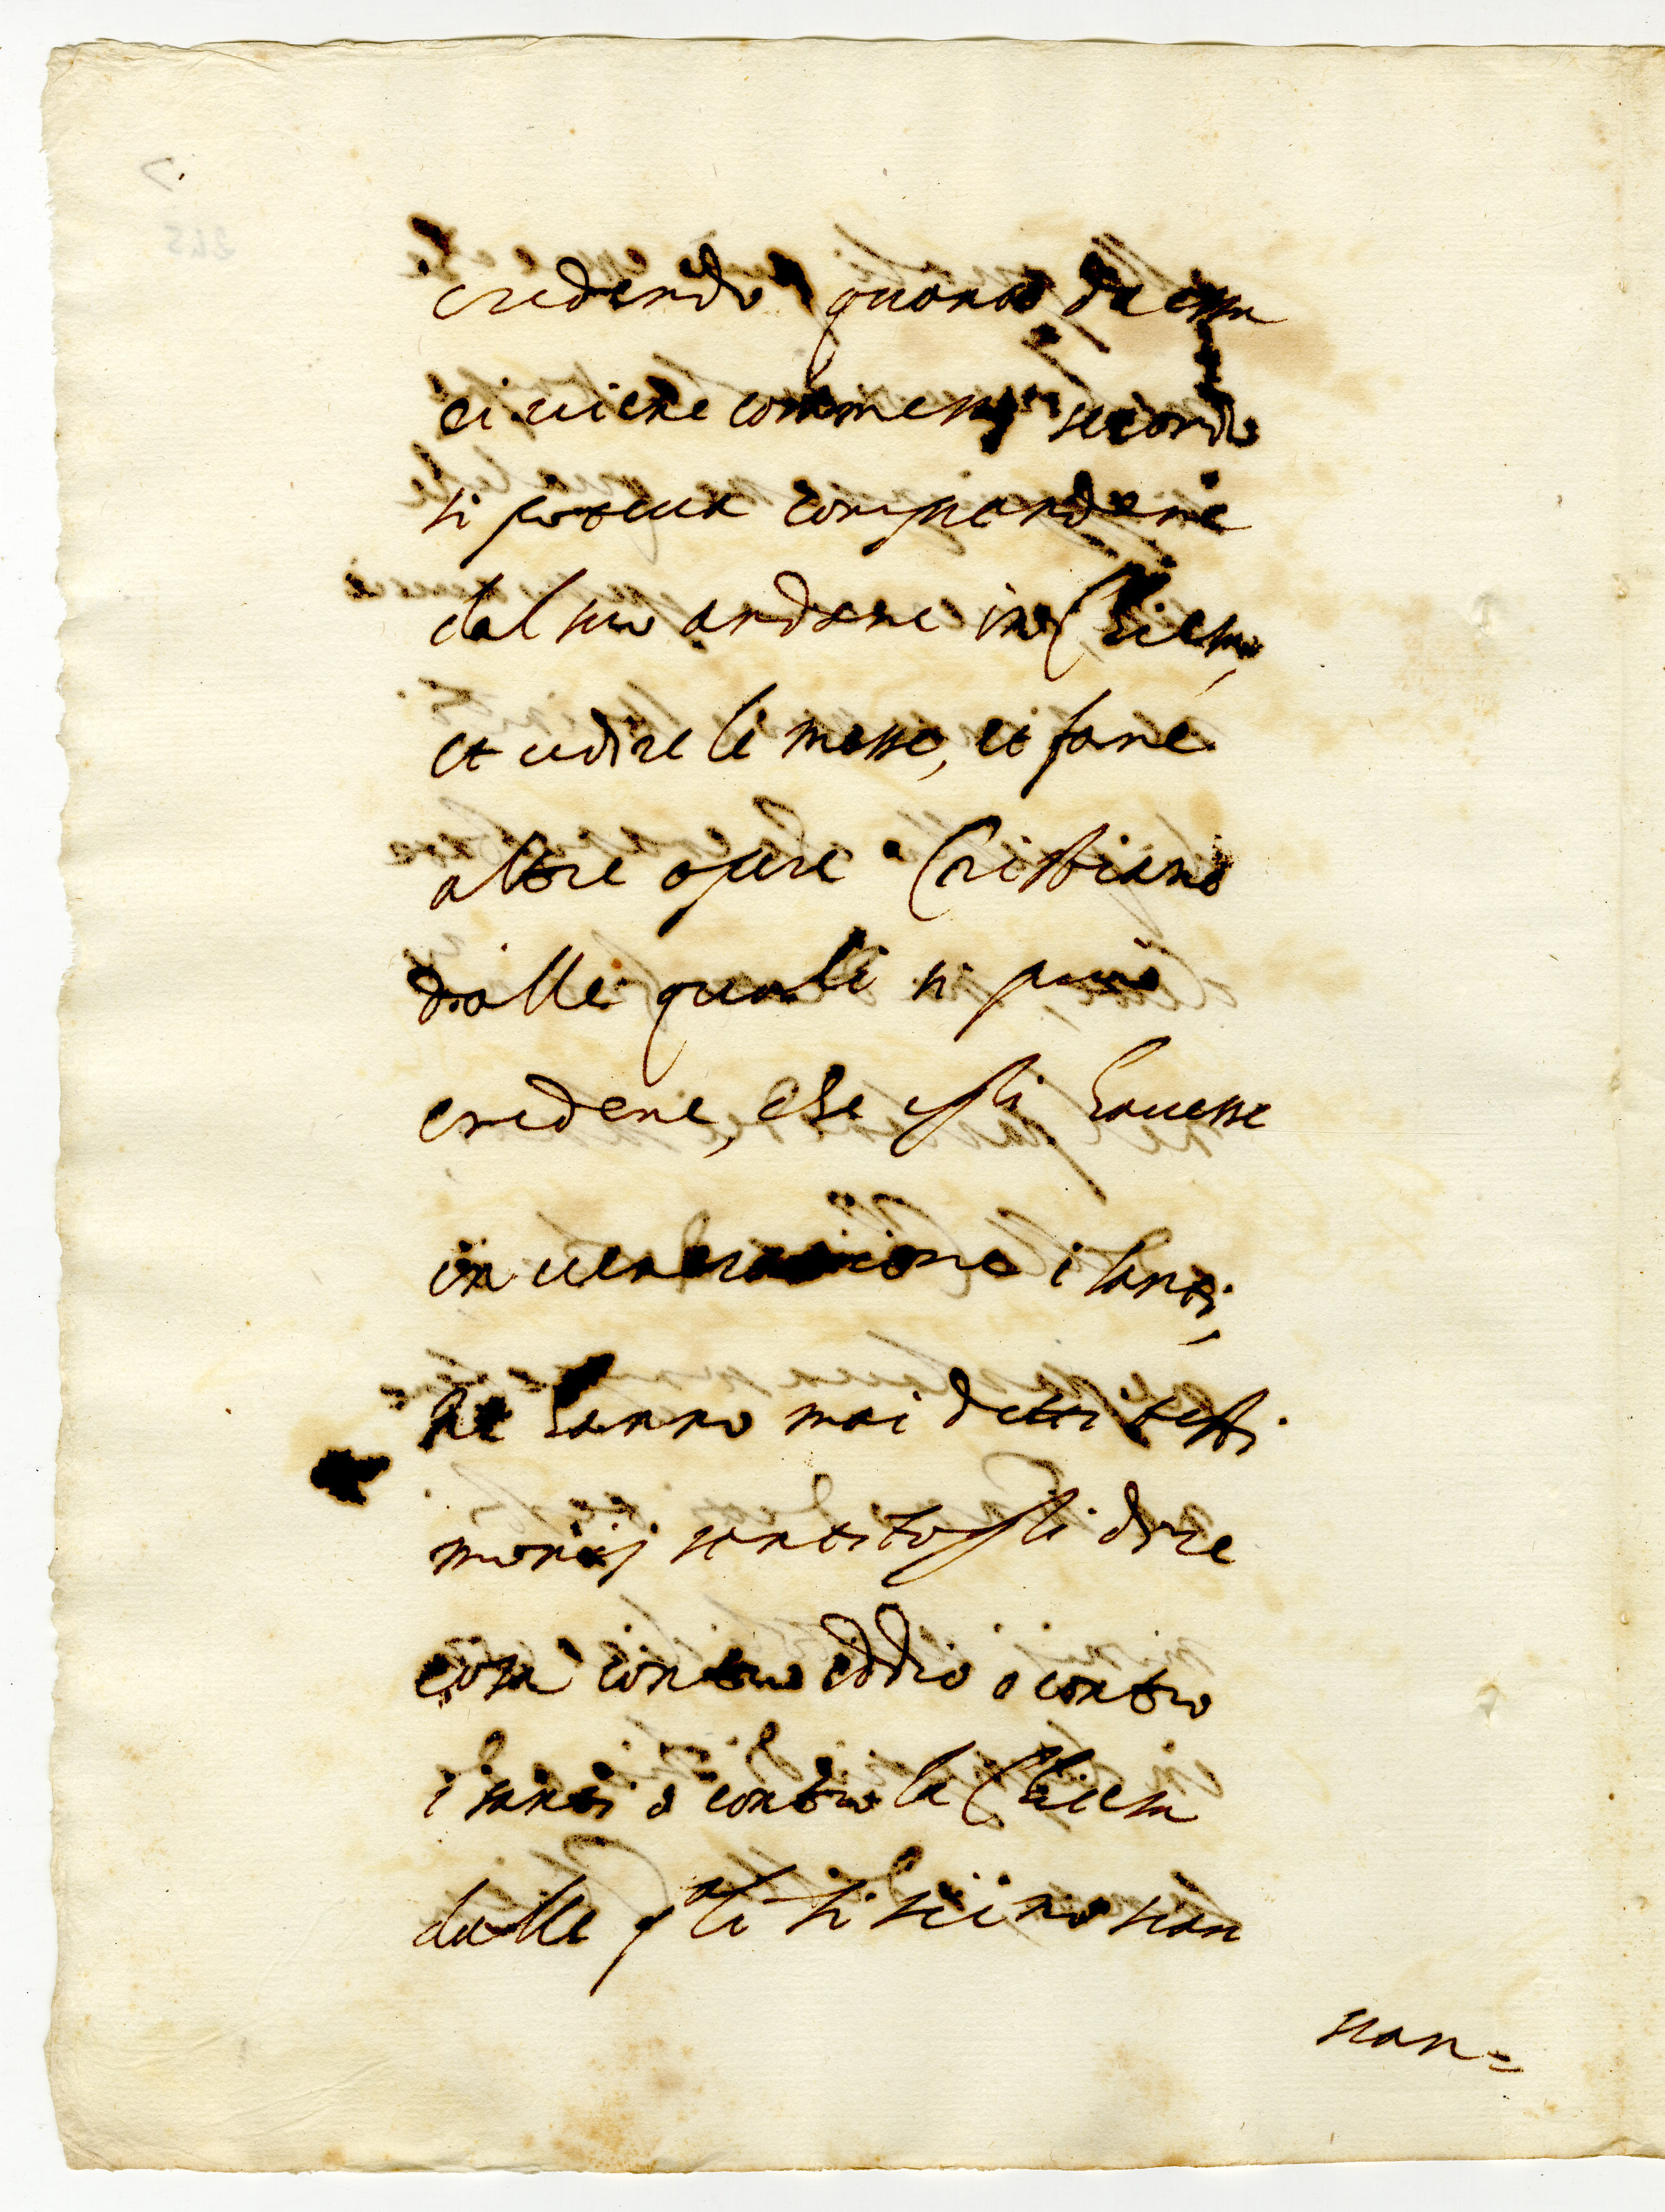 credendo quanto da essa
ci viene commesso secondo
si poteva comprendere
dal suo andare in Chiesa,
et udire le messe, et fare
altre opere Cristiane
dalle quali si può
credere, che egli havesse
in venerazione i santi,
Ne hanno mai detti testi
monij sentitogli dire
cosa contro Iddio o contro
i santi o contro la Chiesa
dalle qli si scan
scan=